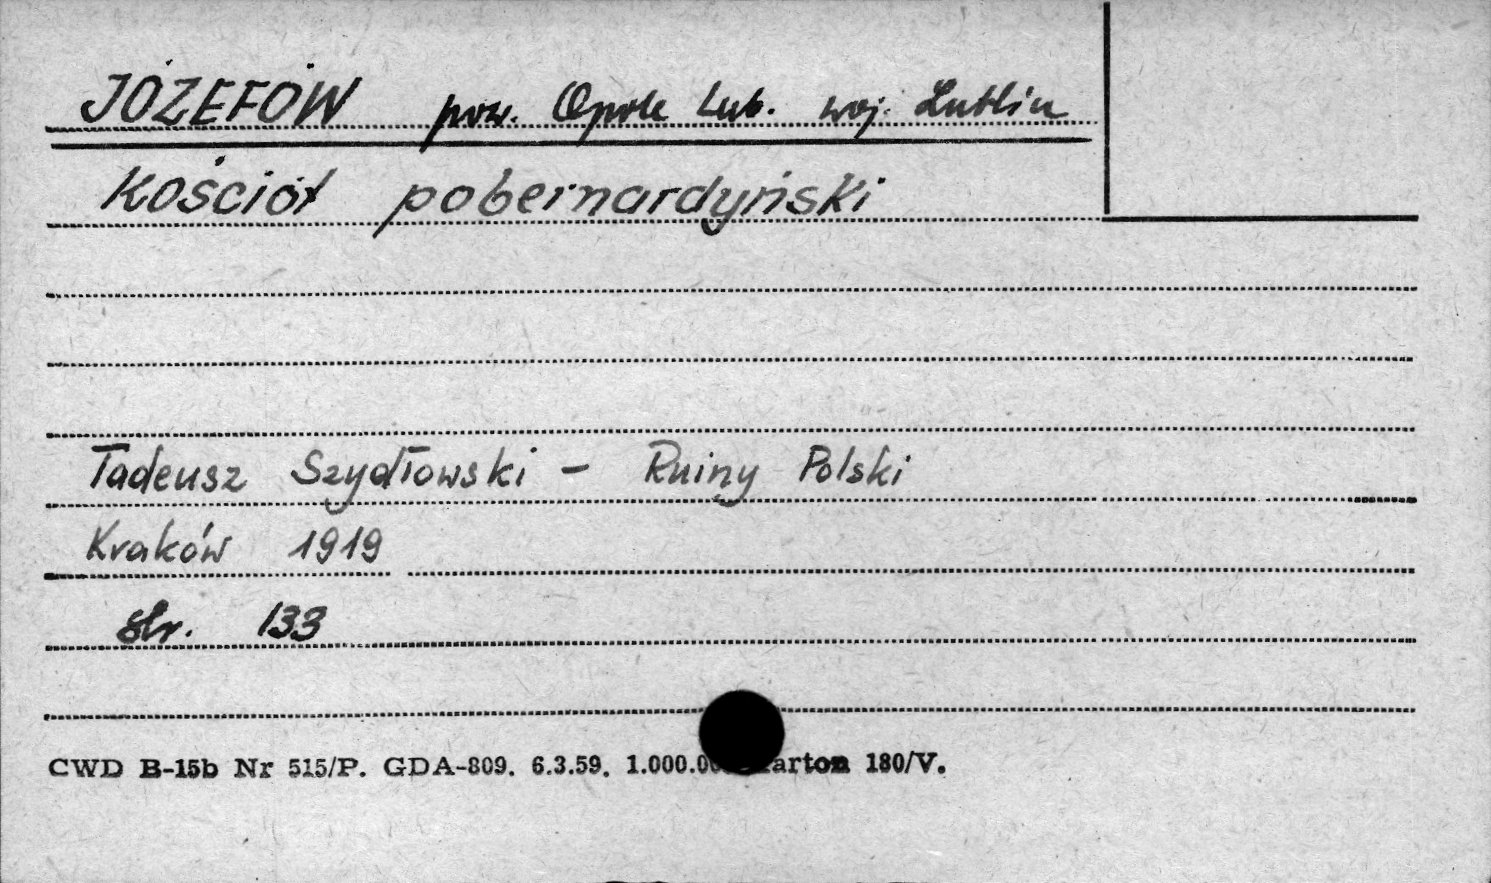 JÓZEFÓW pow. Opole Lub. woj. Lublin
Kościół pobernardyński
Tadeusz Szydłowski - Ruiny Polski
Kraków 1919
str. 133
CWD B-15b Nr 515/P. GDA-809. 6.3.59. 180/V.